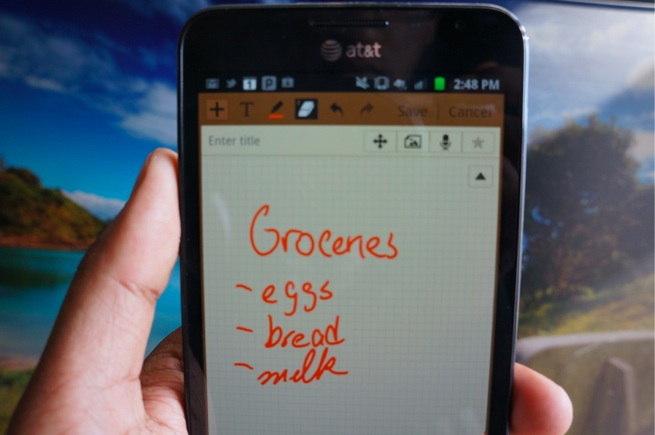 at&t
2:48 PM
T Save Cancel
Enter title
Groceries
- eggs
- bread
- milk